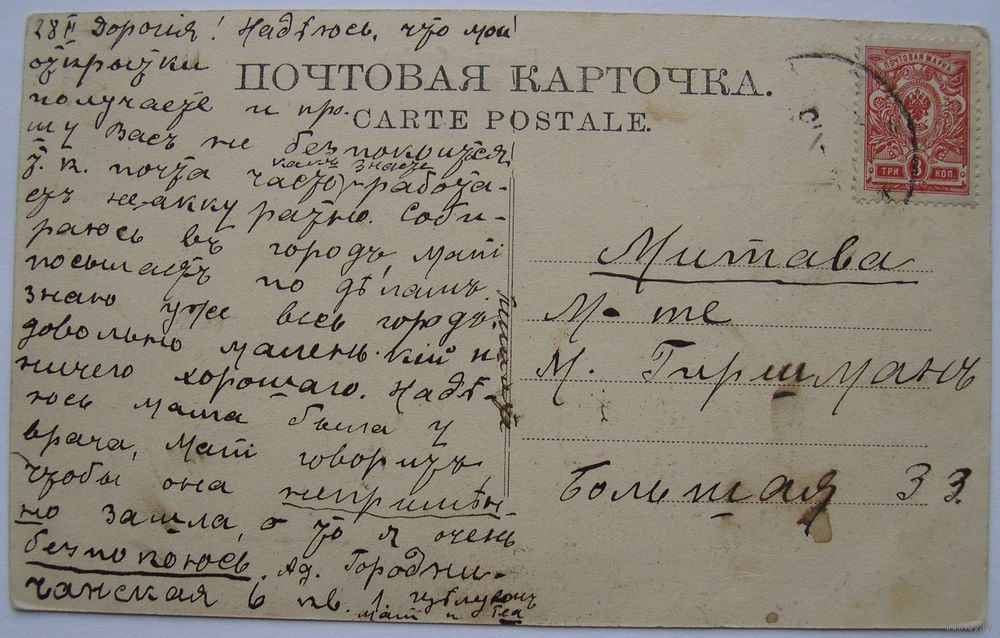 28 II Дорогія! Надѣюсь, что мои
открытки
получаете и про-
шу Васъ не безпокоится
т. к. почта какъ знаете часто работа-
етъ не аккуратно. Соби-
раюсь въ городъ, Мати
посылаетъ по дѣламъ.
знаю уже весь городъ,
довольно маленькій и
ничего хорошаго. Надѣ-
юсь мама была у
врача, Мати говоритъ
чтобы она непримѣн-
но зашла, о то я очень
безпокоюсь. Ад. Городни-
чанская 6 кв. 1
Мати и Tea
ПОЧТОВАЯ КАРТОЧКА.
CARTE POSTALE.
ПОЧТОВАЯ МАРКА
ТРИ 3 КОП
Митава
М-me
М. Гиршманъ
Большая 33.